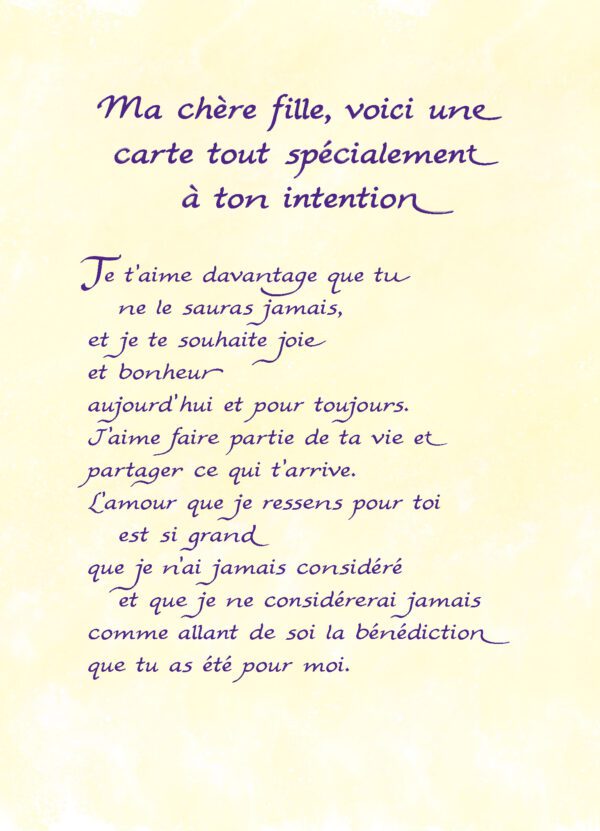 Ma chère fille, voici une
carte tout spécialement
à ton intention
Je t'aime davantage que tu
ne le sauras jamais,
et je te souhaite joie
et bonheur
aujourd'hui et pour toujours.
J'aime faire partie de ta vie et
partager ce qui t'arrive.
L'amour que je ressens pour toi
est si grand
que je n'ai jamais considéré
et que je ne considérerai jamais
comme allant de soi la bénédiction
que tu as été pour moi.